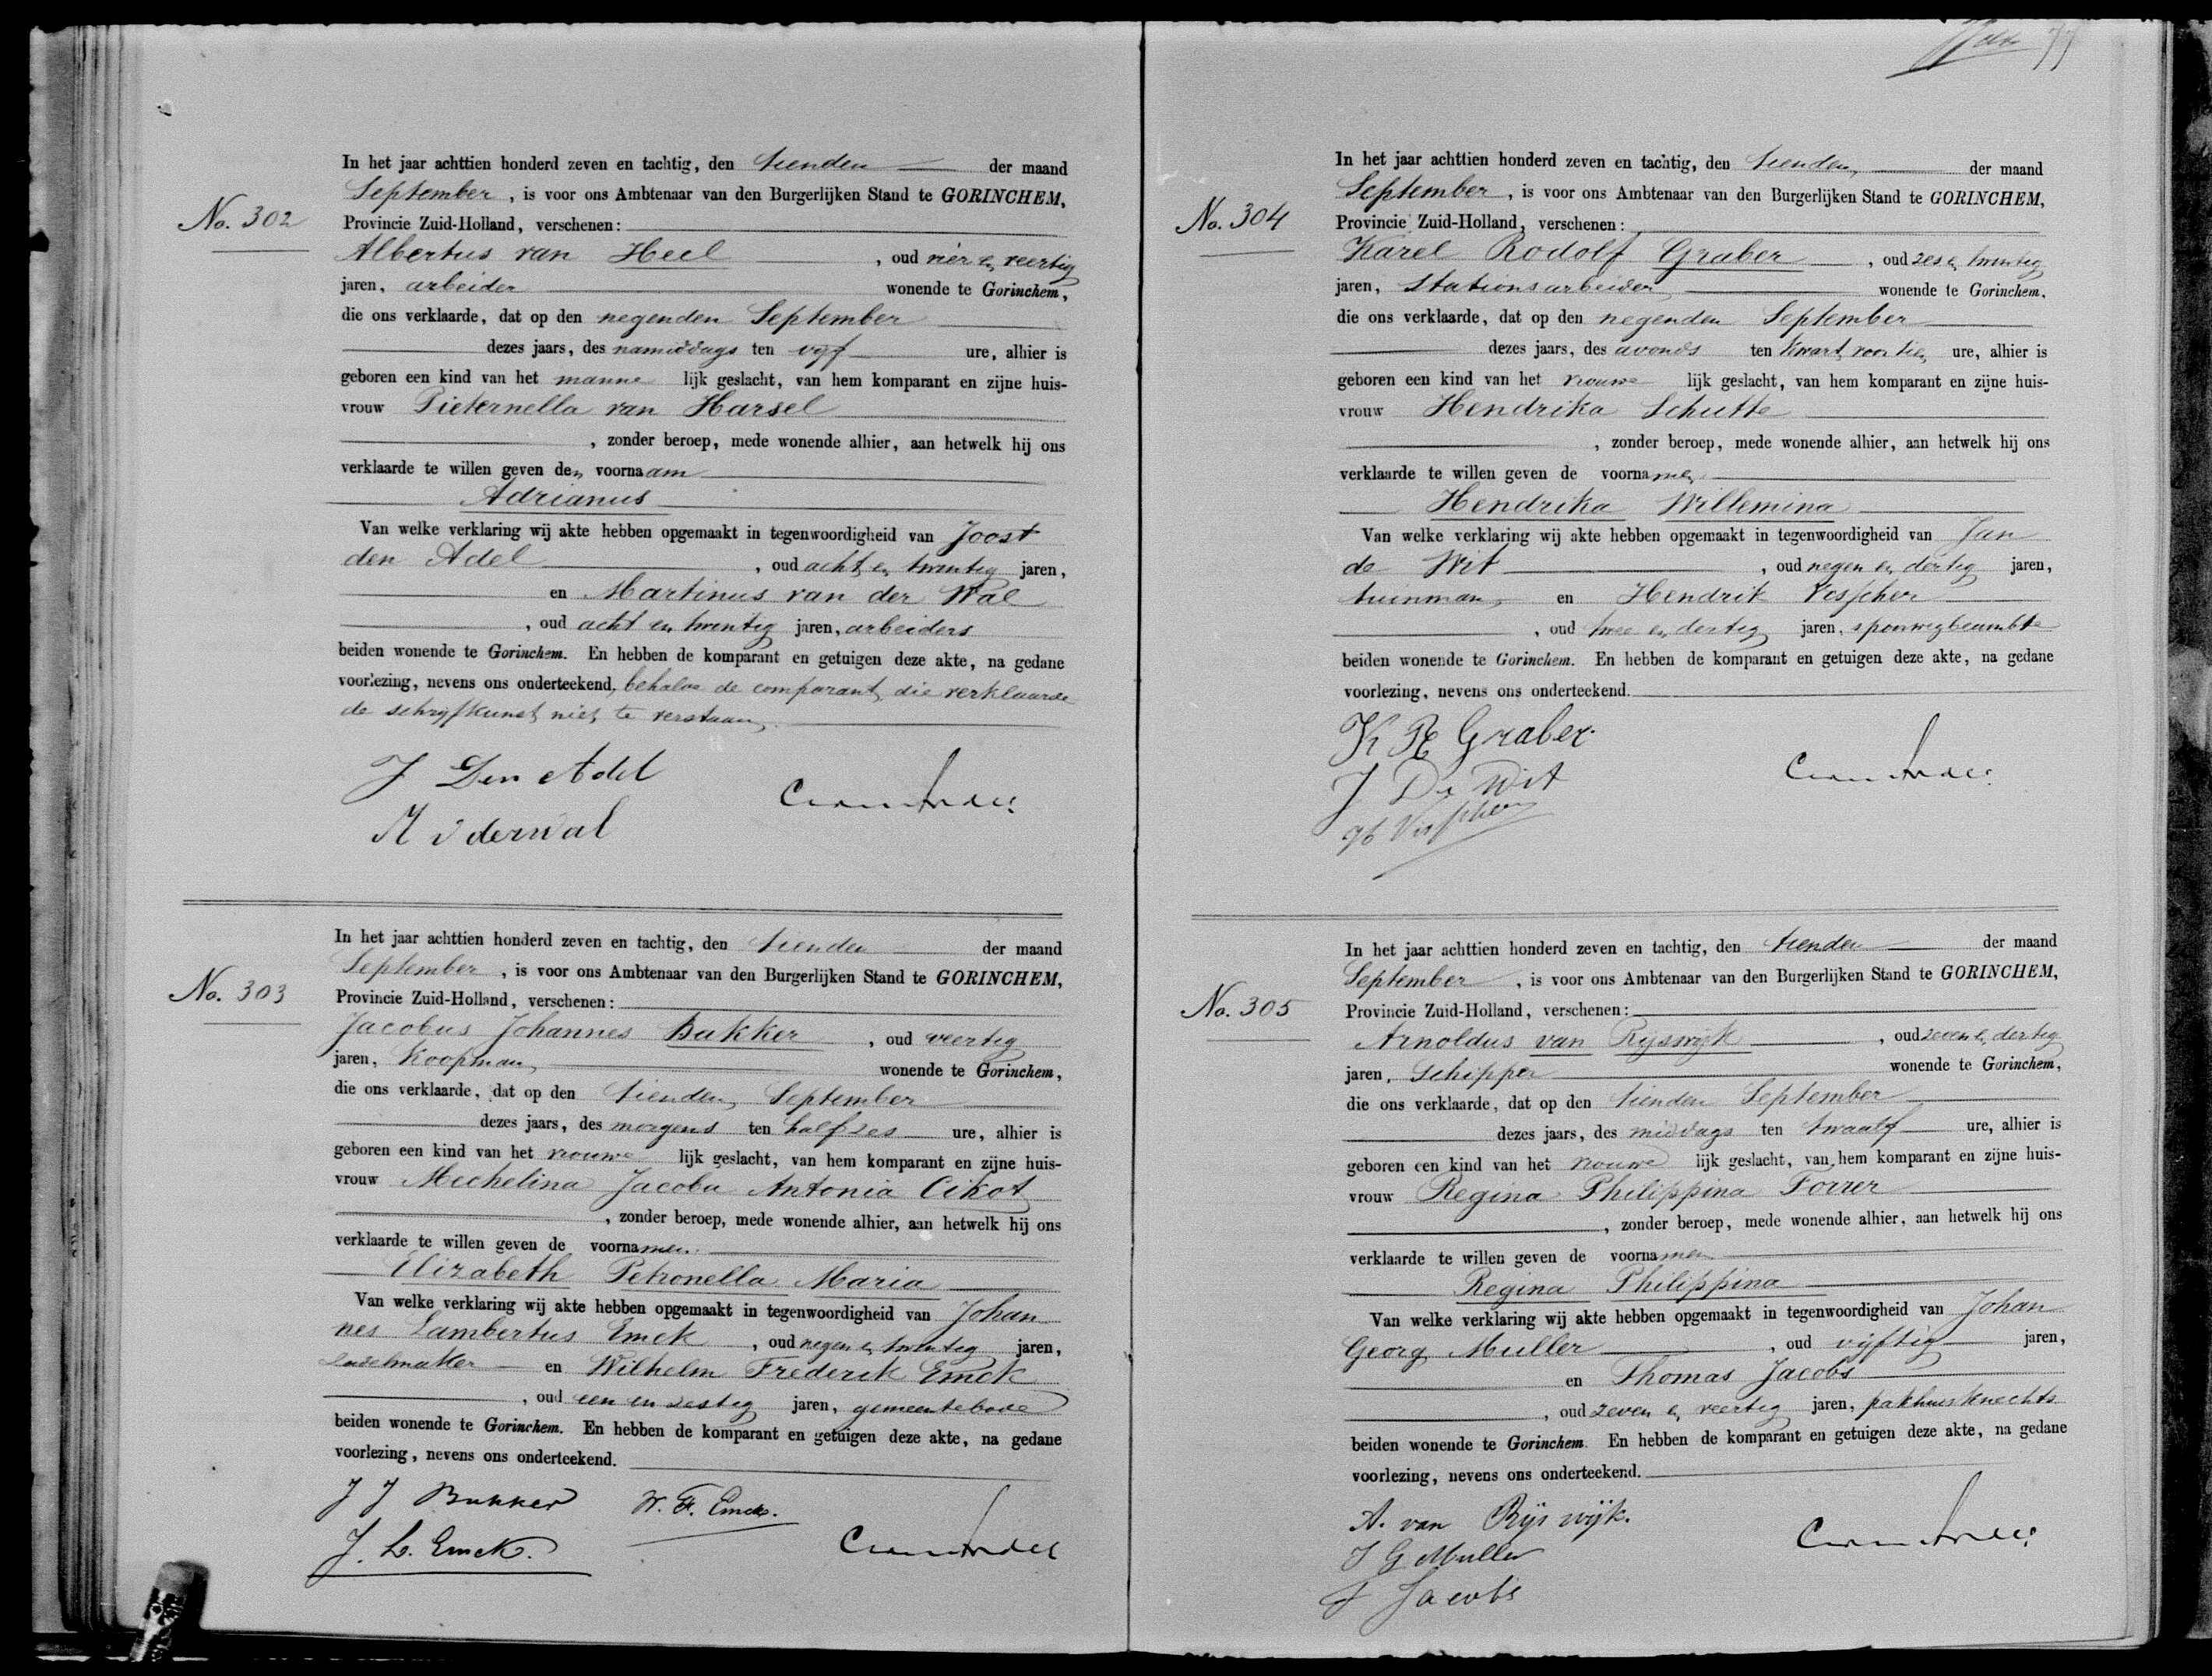 77
No. 302
In het jaar achttien honderd zeven en tachtig, den tienden der maand
September, is voor ons Ambtenaar van den Burgerlijken Stand te GORINCHEM,
Provincie Zuid-Holland, verschenen:
Albertus van Heel, oud vier en veertig
jaren, arbeider wonende te Gorinchem,
die ons verklaarde, dat op den negenden September
dezes jaars, des namiddags ten vijf ure, alhier is
geboren een kind van het mannelijk geslacht, van hem komparant en zijne huis-
vrouw Pieternella van Harsel
, zonder beroep, mede wonende alhier, aan hetwelk hij ons
verklaarde te willen geven den voornaam
Adrianus
Van welke verklaring wij akte hebben opgemaakt in tegenwoordigheid van Joost
den Adel, oud acht en twintig jaren,
en Martinus van der Wal
, oud acht en twintig jaren, arbeiders
beiden wonende te Gorinchem. En hebben de komparant en getuigen deze akte, na gedane
voorlezing, nevens ons onderteekend, behalve de comparant, die verklaarde
de schrijfkunst niet te verstaan.
J Den Adel
M v derwal
No. 303
In het jaar achttien honderd zeven en tachtig, den tienden der maand
September, is voor ons Ambtenaar van den Burgerlijken Stand te GORINCHEM,
Provincie Zuid-Holland, verschenen:
Jacobus Johannes Bakker, oud veertig
jaren, Koopman wonende te Gorinchem,
die ons verklaarde, dat op den tienden September
dezes jaars, des morgens ten half zes ure, alhier is
geboren een kind van het vrouwelijk geslacht, van hem komparant en zijne huis-
vrouw Mechelina Jacoba Antonia Cikot
, zonder beroep, mede wonende alhier, aan hetwelk hij ons
verklaarde te willen geven de voornamen
Elizabeth Petronella Maria
Van welke verklaring wij akte hebben opgemaakt in tegenwoordigheid van Johan
nes Lambertus Emck, oud negen en twintig jaren,
en Wilhelm Frederik Emck
, oud een en zestig jaren, gemeentebode
beiden wonende te Gorinchem. En hebben de komparant en getuigen deze akte, na gedane
voorlezing, nevens ons onderteekend.
J J Bakker W. F. Emck.
J. L. Emck.
No. 304
In het jaar achttien honderd zeven en tachtig, den tienden der maand
September, is voor ons Ambtenaar van den Burgerlijken Stand te GORINCHEM,
Provincie Zuid-Holland, verschenen:
Karel Rodolf Graber, oud zes en twintig
jaren, Stationsarbeider wonende te Gorinchem,
die ons verklaarde, dat op den negenden September
dezes jaars, des avonds ten kwart voor tien ure, alhier is
geboren een kind van het vrouwelijk geslacht, van hem komparant en zijne huis-
vrouw Hendrika Schutte
, zonder beroep, mede wonende alhier, aan hetwelk hij ons
verklaarde te willen geven de voornamen
Hendrika Willemina
Van welke verklaring wij akte hebben opgemaakt in tegenwoordigheid van Jan
de Wit, oud negen en dertig jaren,
tuinman, en Hendrik Visscher
, oud twee en dertig jaren, spoorwegbeambte
beiden wonende te Gorinchem. En hebben de komparant en getuigen deze akte, na gedane
voorlezing, nevens ons onderteekend.
K R Graber
J De Wit
H Visscher
No. 305
In het jaar achttien honderd zeven en tachtig, den tienden der maand
September, is voor ons Ambtenaar van den Burgerlijken Stand te GORINCHEM,
Provincie Zuid-Holland, verschenen:
Arnoldus van Rijswijk, oud zeven en dertig
jaren, Schipper wonende te Gorinchem,
die ons verklaarde, dat op den tienden September
dezes jaars, des middags ten twaalf ure, alhier is
geboren een kind van het vrouwelijk geslacht, van hem komparant en zijne huis-
vrouw Regina Philippina Forrer
, zonder beroep, mede wonende alhier, aan hetwelk hij ons
verklaarde te willen geven de voornamen
Regina Philippina
Van welke verklaring wij akte hebben opgemaakt in tegenwoordigheid van Johan
Georg Muller, oud vijftig jaren,
en Thomas Jacobs
, oud zeven en veertig jaren, pakhuisknechts
beiden wonende te Gorinchem. En hebben de komparant en getuigen deze akte, na gedane
voorlezing, nevens ons onderteekend.
A. van Rijswijk.
J G Muller
T Jacobs